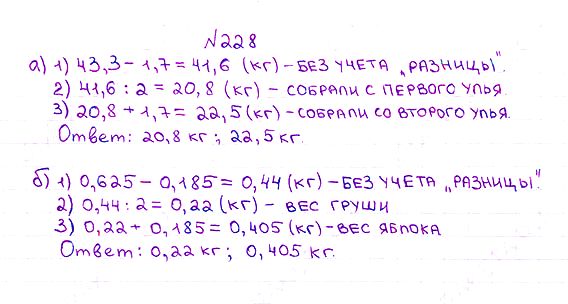 №228
а) 1) 43,3 - 1,7 = 41,6 (кг) - БЕЗ УЧЕТА „РАЗНИЦЫ".
2) 41,6 : 2 = 20,8 (кг) - СОБРАЛИ С ПЕРВОГО УЛЬЯ.
3) 20,8 + 1,7 = 22,5 (кг) - СОБРАЛИ СО ВТОРОГО УЛЬЯ.
Ответ: 20,8 кг ; 22,5 кг.
б) 1) 0,625 - 0,185 = 0,44 (кг) - БЕЗ УЧЕТА „РАЗНИЦЫ".
2) 0,44 : 2 = 0,22 (кг) - ВЕС ГРУШИ
3) 0,22 + 0,185 = 0,405 (кг) - ВЕС ЯБЛОКА
Ответ: 0,22 кг ; 0,405 кг.